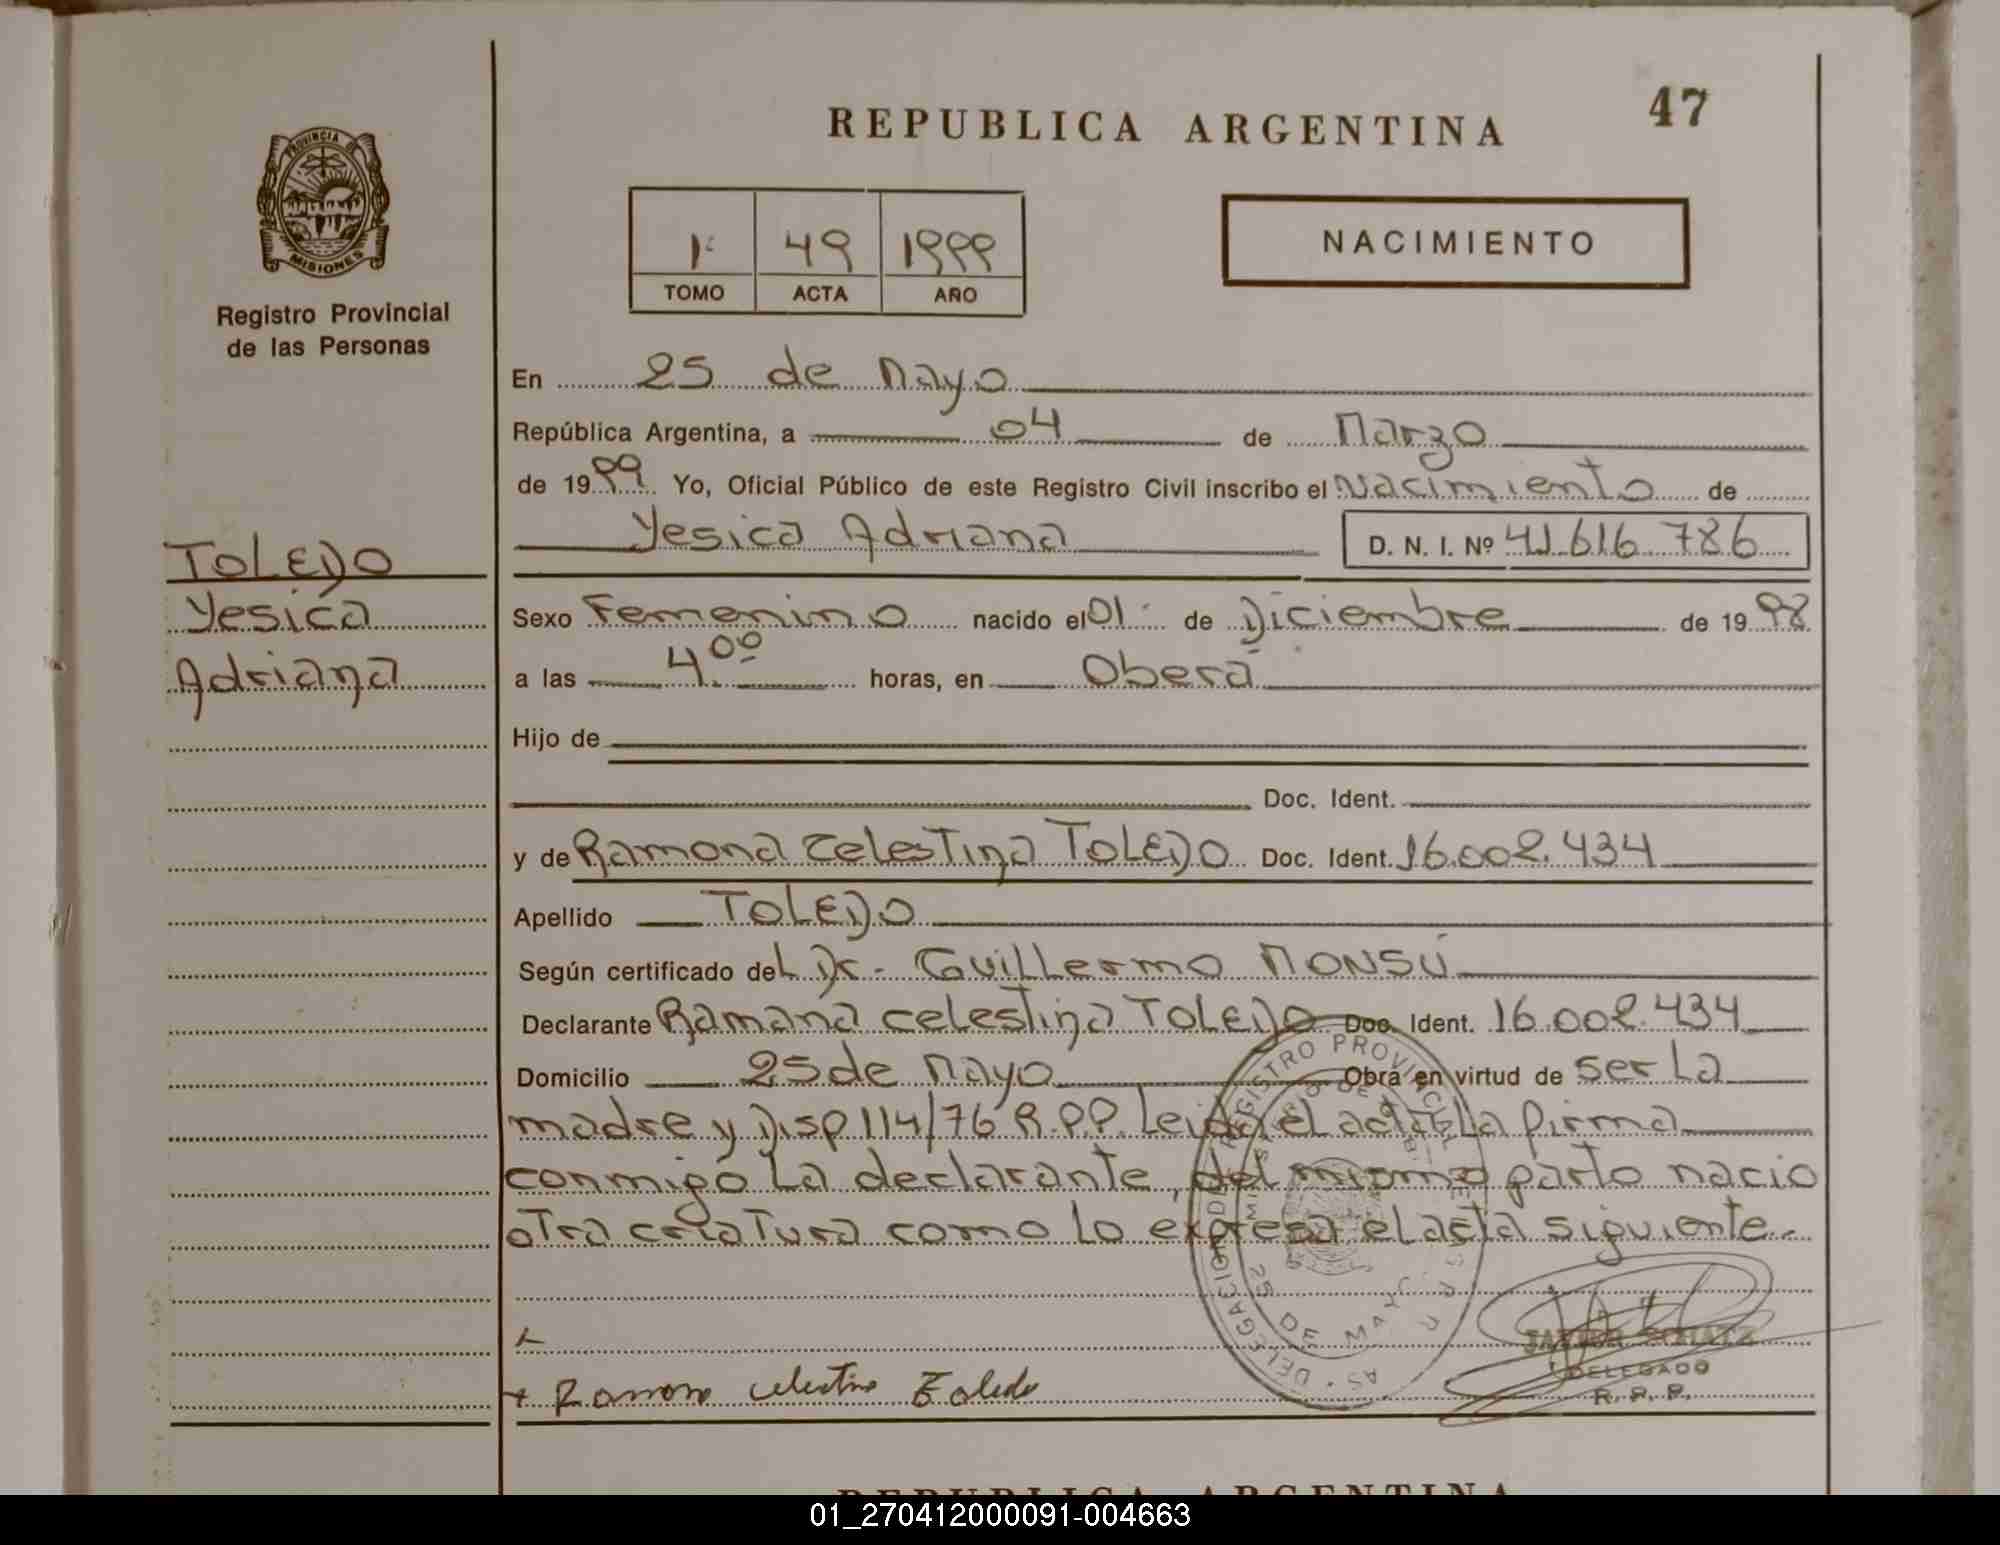 47
REPUBLICA ARGENTINA
PROVINCIA DE
MISIONES
Registro Provincial
de las Personas
1º 49 1999
TOMO ACTA AÑO
NACIMIENTO
En 25 de Mayo
República Argentina, a 04 de Marzo
de 1999 Yo, Oficial Público de este Registro Civil inscribo el Nacimiento de
Yesica Adriana D. N. I. Nº 41.616.786
TOLEDO
Yesica
Adriana
Sexo Femenino nacido el 01 de Diciembre de 1998
a las 4.00 horas, en Oberá
Hijo de
Doc. Ident.
y de Ramona Celestina TOLEDO Doc. Ident. 16.002.434
Apellido TOLEDO
Según certificado del Dr. Guillermo MONSÚ
Declarante Ramona Celestina TOLEDO Doc. Ident. 16.002.434
Domicilio 25 de Mayo Obra en virtud de ser La
madre y Disp 114/76 R.P.P. Leida el acta La firma
conmigo La declarante, del mismo parto nacio
otra criatura como lo expresa el acta siguiente.
DELEGACION REGISTRO PROVINCIAL DE LAS
25 DE MAYO
DELEGADO
R. P. P.
Ramona Celestina Toledo
REPUBLICA ARGENTINA
01_270412000091-004663